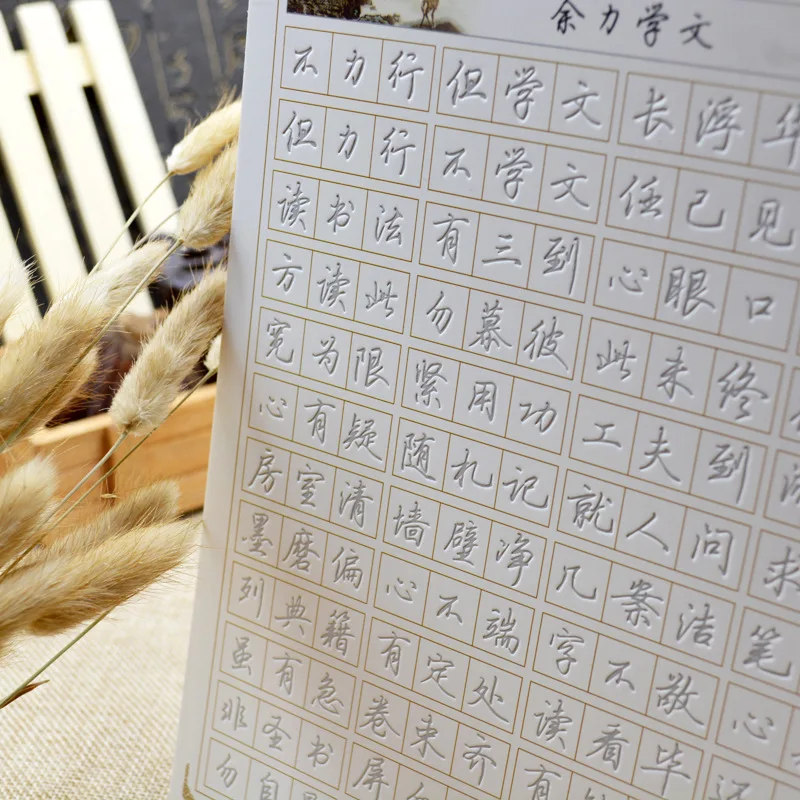 余力学文
不力行 但学文 长浮华
但力行 不学文 任己见
读书法 有三到 心眼口
方读此 勿慕彼 此未终
宽为限 紧用功 工夫到
心有疑 随札记 就人问 求
房室清 墙壁净 几案洁 笔
墨磨偏 心不端 字不敬 心
列典籍 有定处 读看毕
虽有急 卷束齐 有
非圣书 屏
勿自